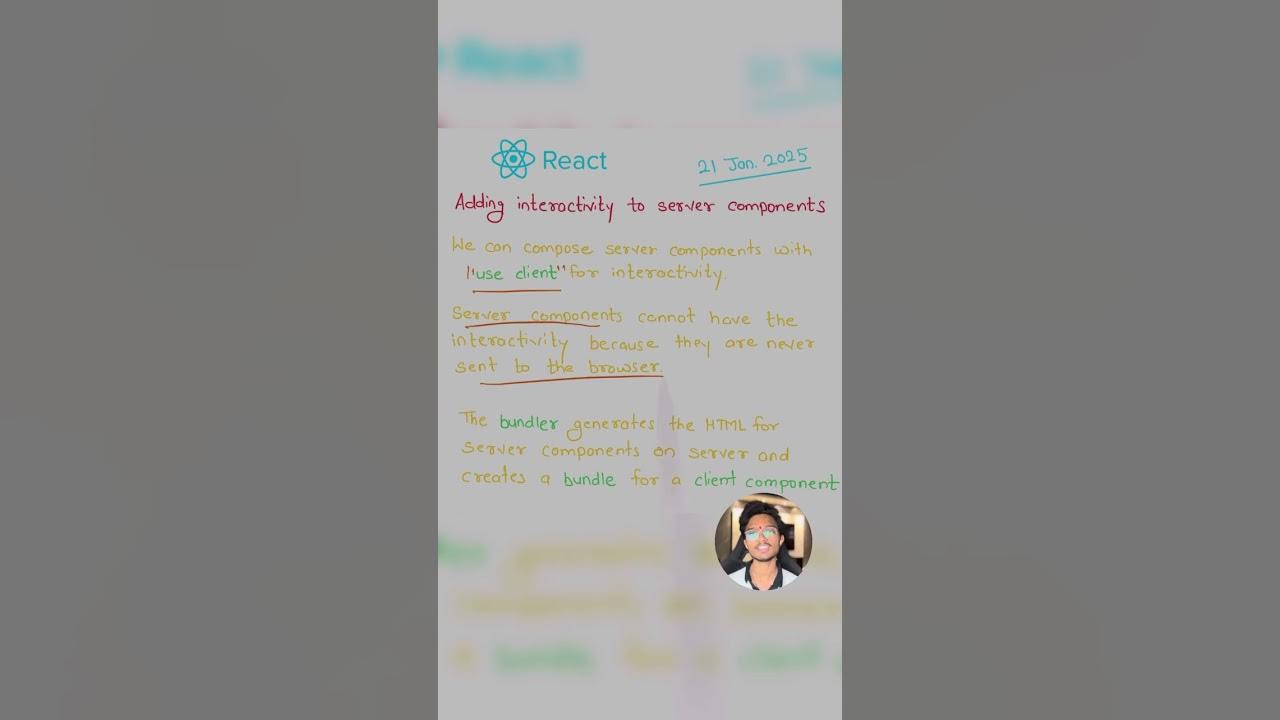 React
21 Jan. 2025
Adding interactivity to server components
We can compose server components with
"use client" for interactivity.
Server components cannot have the
interactivity because they are never
sent to the browser.
The bundler generates the HTML for
server components on server and
creates a bundle for a client component